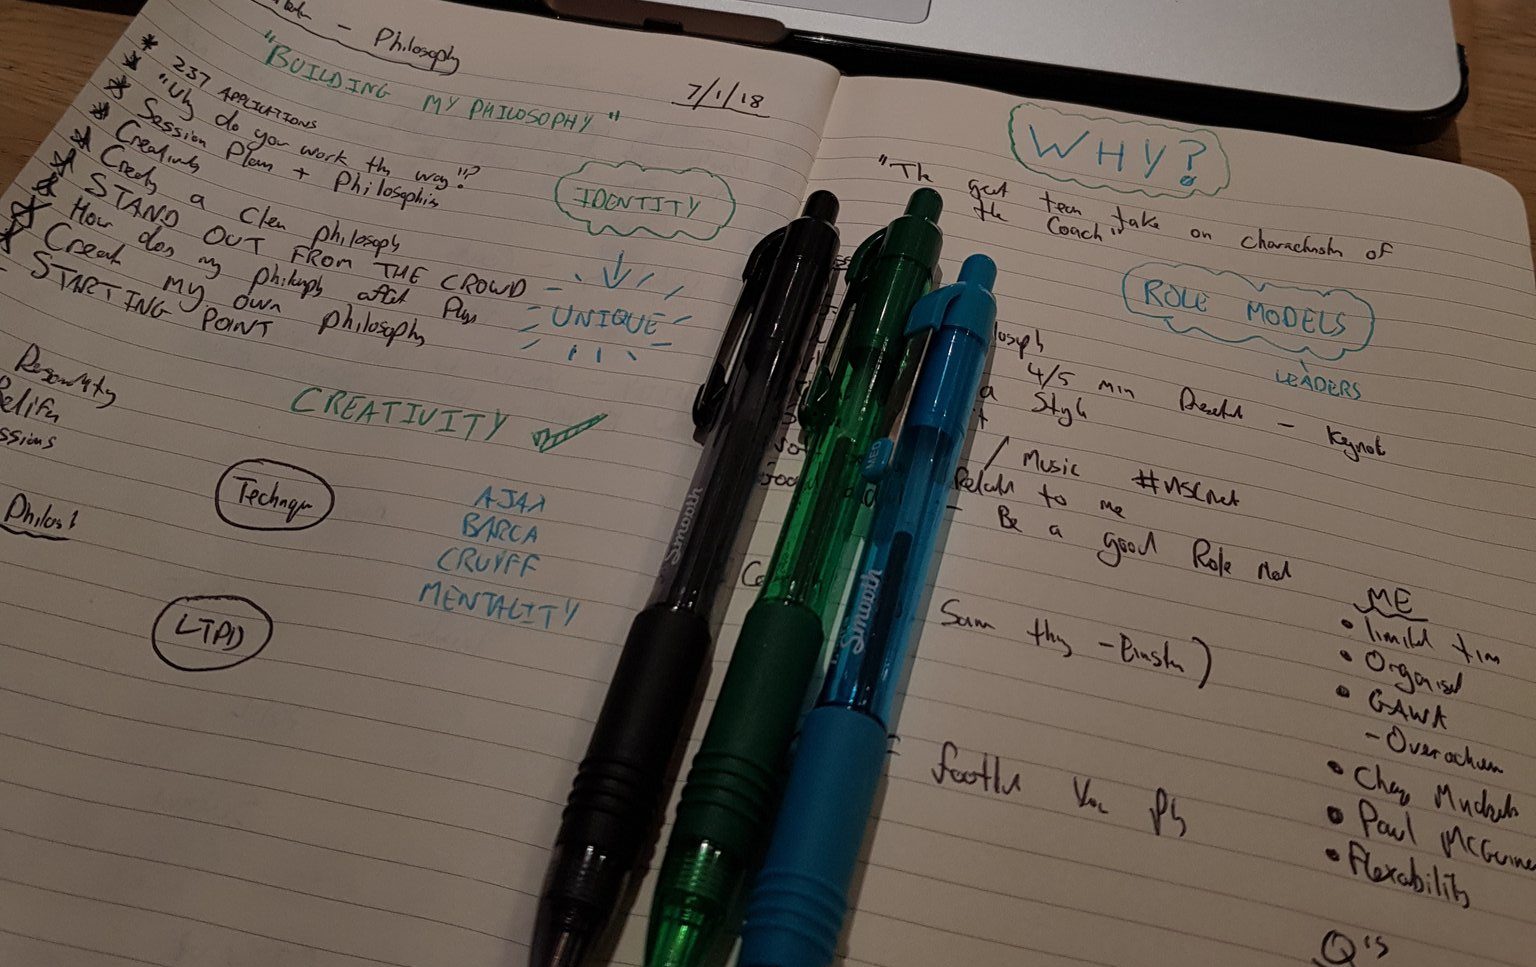 - Philosophy
"BUILDING MY PHILOSOPHY"
7/1/18
* 237 APPLICATIONS
* "Why do you work this way"?
* Session Plan + Philosophies
* Creativity
* Creating a Clear philosophy
* STAND OUT FROM THE CROWD
* How does my philosophy affect
* Create my own philosophy
- STARTING POINT
IDENTITY
UNIQUE
CREATIVITY
Personality
Beliefs
ssions
Philos
Technique
LTPD
AJAX
BARCA
CRUYFF
MENTALITY
WHY?
"The great team take on characteristics of
the Coach"
ROLE MODELS
LEADERS
losophy
4/5 min - Keynote
a Style
/ Music
Relate to me
- Be a good Role
Smooth
Smooth
MED
ME
• limited time
• Organised
• GAWA
- Overachieve
•
• Paul McGuinne
• Flexability
Q's